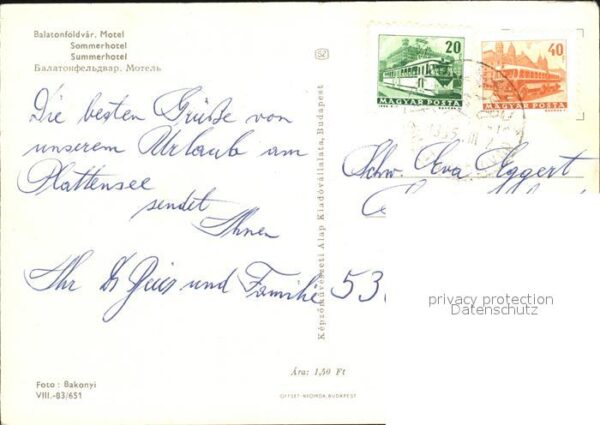 Balatonföldvár. Motel
Sommerhotel
Summerhotel
Балатонфельдвар. Мотель
20
MAGYAR POSTA
40 F
MAGYAR POSTA
Die besten Grüße von
unserem Urlaub am
Plattensee
sendet
Ihnen
Ihr und Familie
Képzőművészeti Alap Kiadóvállalata, Budapest
Schw. Eva Eggert
53
privacy protection
Datenschutz
Ára: 1,50 Ft
Foto: Bakonyi
VIII.-83/651
OFFSET-NYOMDA, BUDAPEST